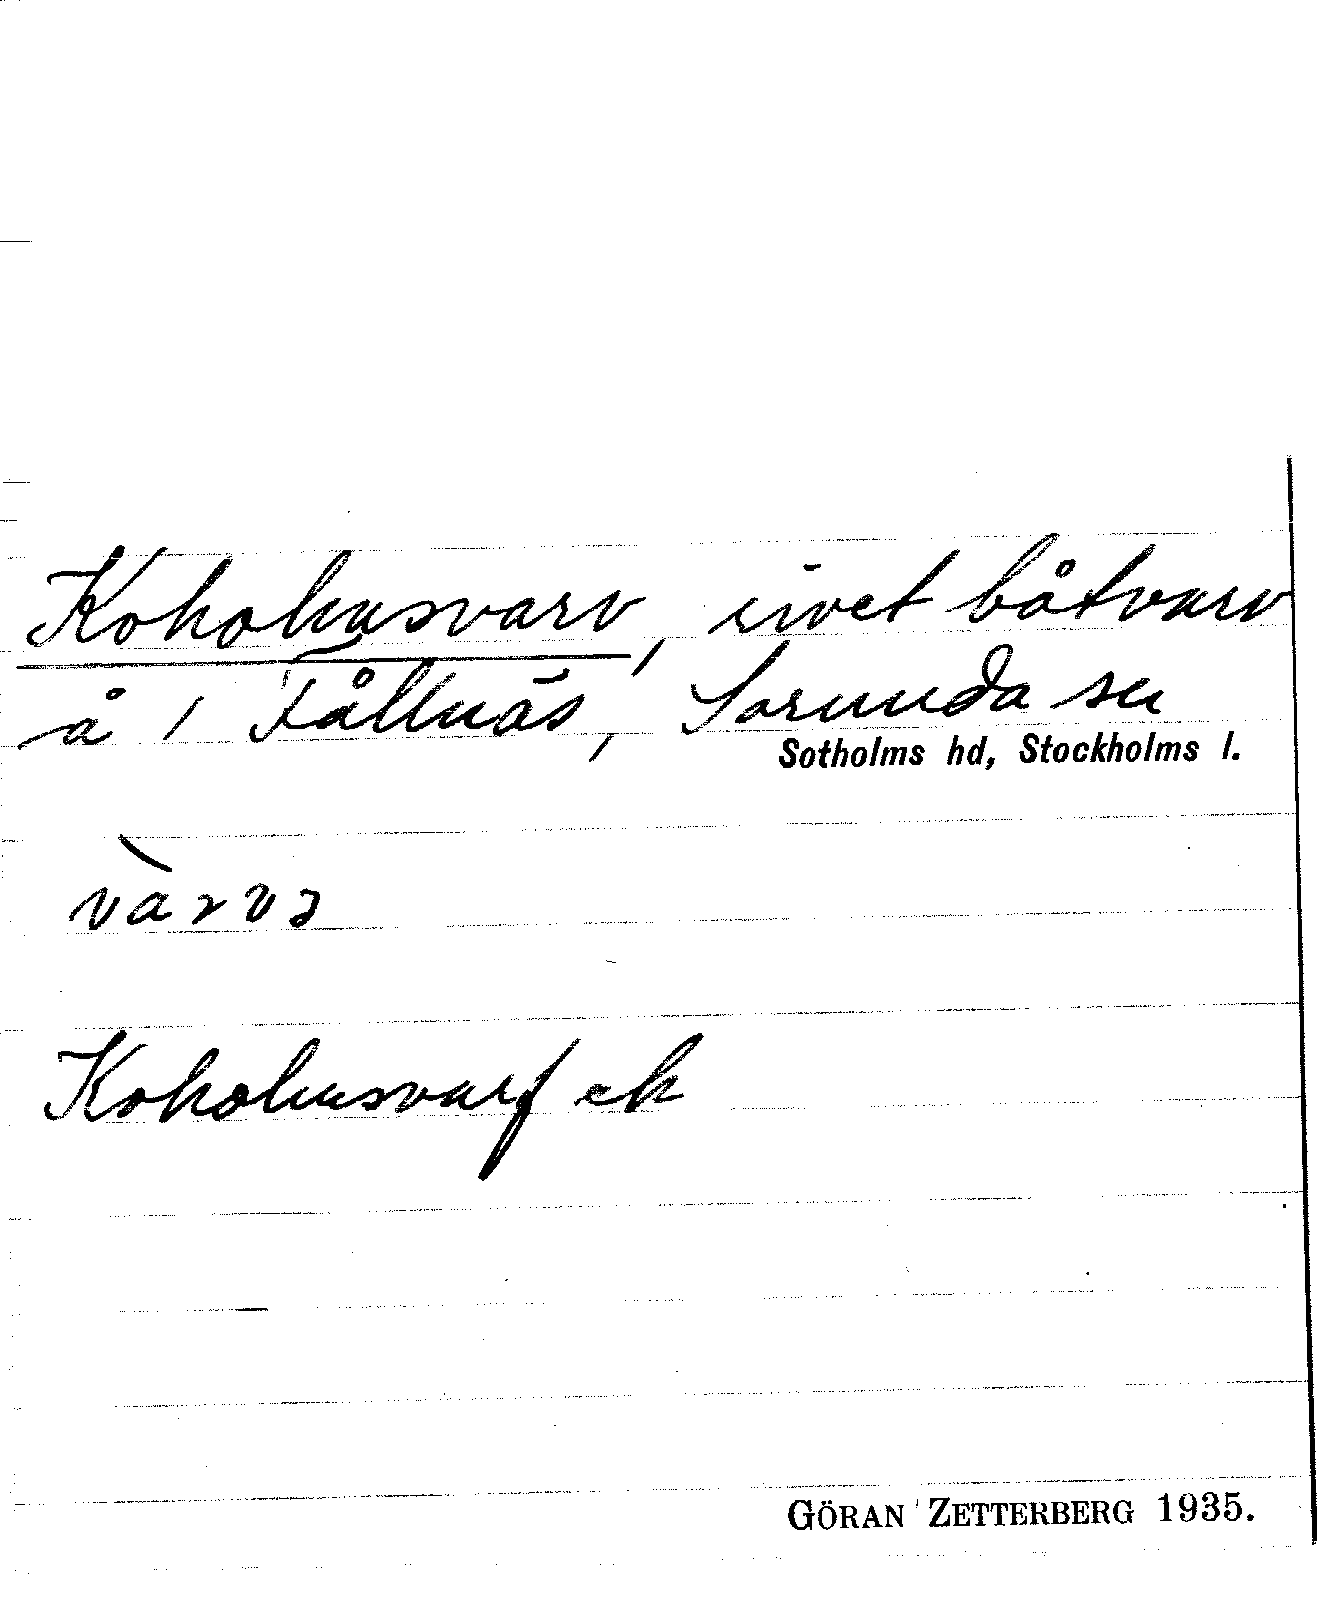 Kokholmsvarv, rivet båtvarv
å 1 Fållnäs, Sorunda sn
Sotholms hd, Stockholms l.
vàrvə
Kokholmsvarf ek
GÖRAN ZETTERBERG 1935.